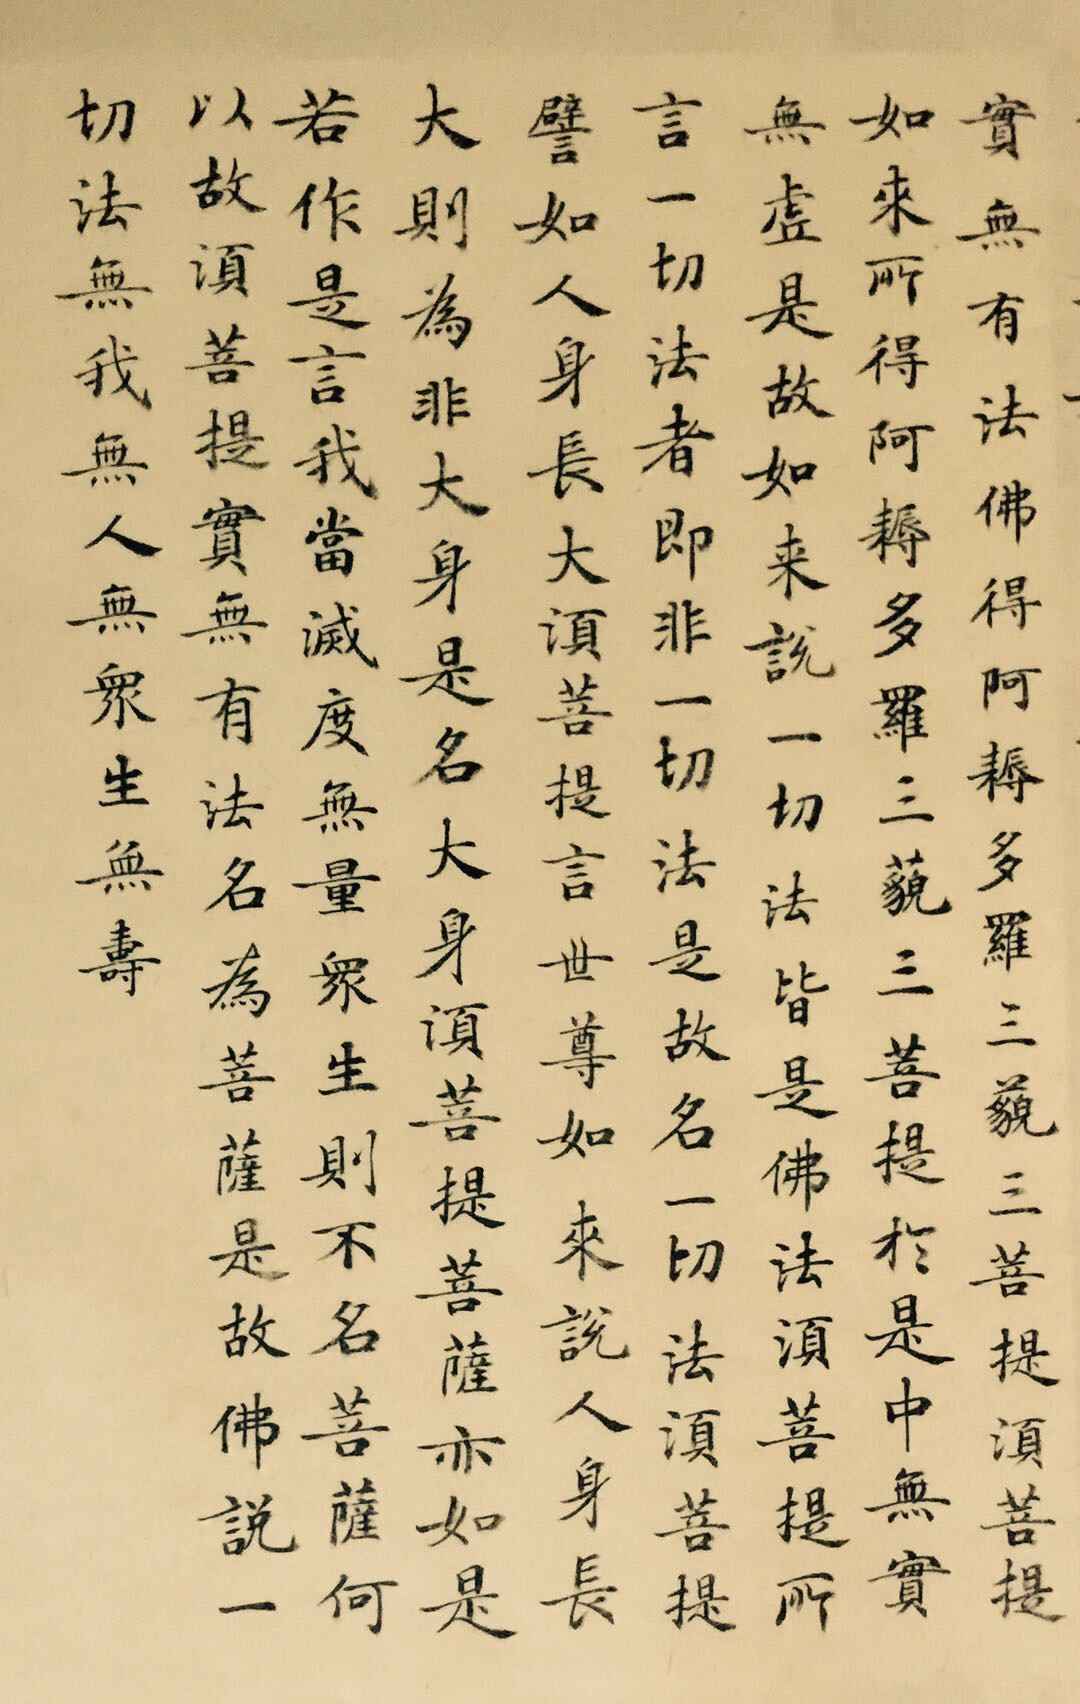 實無有法佛得阿耨多羅三藐三菩提須菩提
如來所得阿耨多羅三藐三菩提於是中無實
無虗是故如来說一切法皆是佛法須菩提所
言一切法者即非一切法是故名一切法須菩提
譬如人身長大須菩提言世尊如來說人身長
大則為非大身是名大身須菩提菩薩亦如是
若作是言我當滅度無量眾生則不名菩薩何
以故須菩提實無有法名為菩薩是故佛說一
切法無我無人無眾生無壽